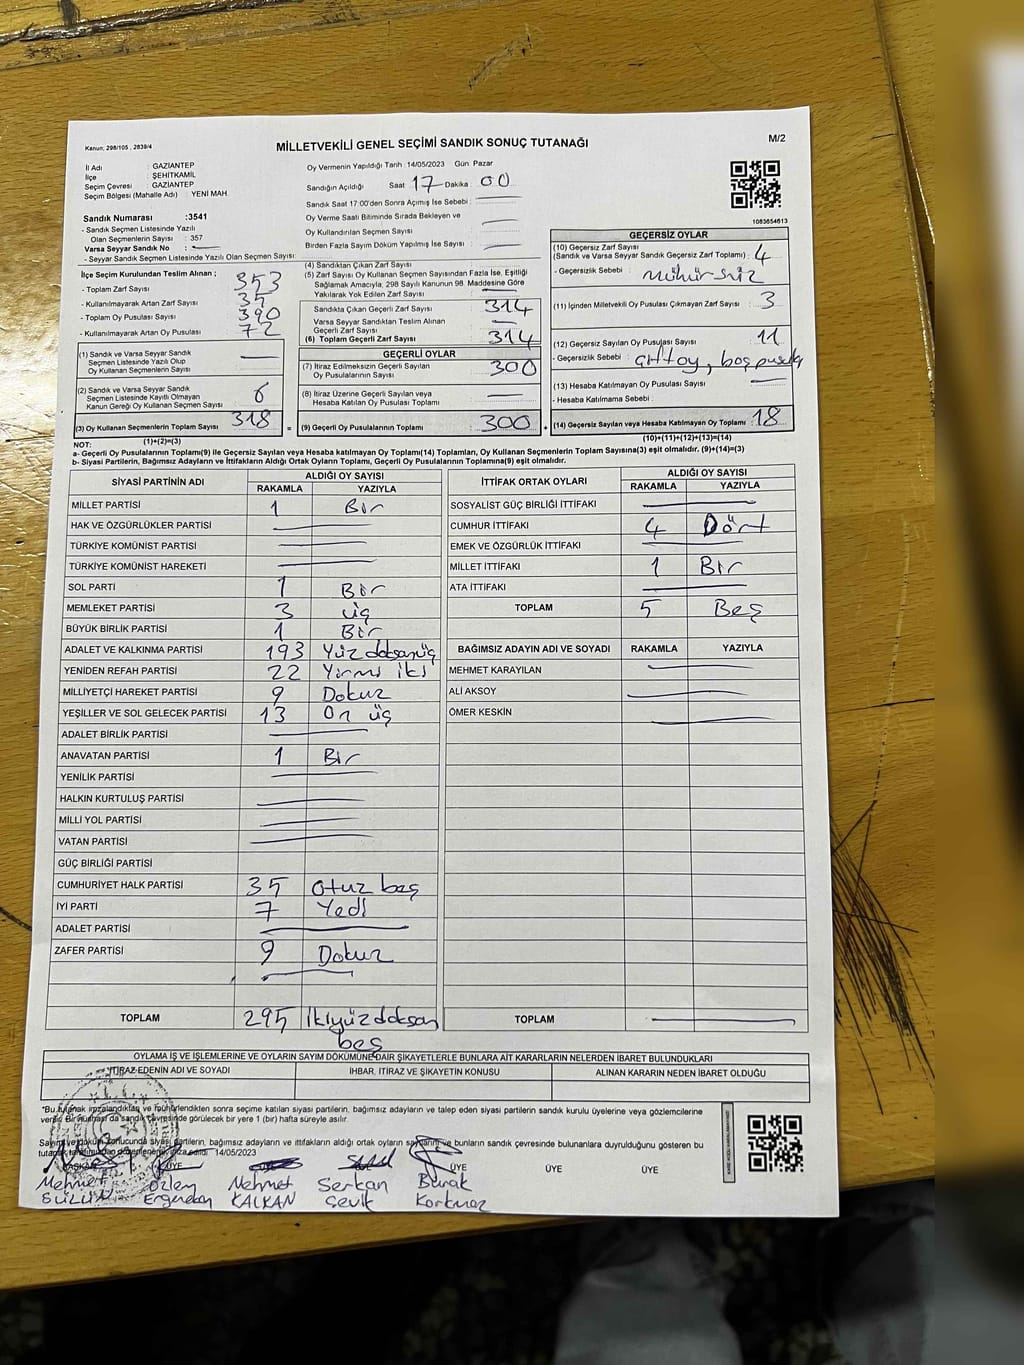 Kanun: 298/105, 2839/4
MİLLETVEKİLİ GENEL SEÇİMİ SANDIK SONUÇ TUTANAĞI
M/2
İl Adı : GAZİANTEP
İlçe : ŞEHİTKAMİL
Seçim Çevresi : GAZİANTEP
Seçim Bölgesi (Mahalle Adı) : YENİ MAH.
Oy Vermenin Yapıldığı Tarih :14/05/2023 Gün: Pazar
Sandığın Açıldığı Saat 17 Dakika : 00
Sandık Saat 17:00'den Sonra Açımış İse Sebebi :
Oy Verme Saati Bitiminde Sırada Bekleyen ve
Oy Kullandırılan Seçmen Sayısı
Birden Fazla Sayım Döküm Yapılmış İse Sayısı :
1083654613
Sandık Numarası :3541
- Sandık Seçmen Listesinde Yazılı
Olan Seçmenlerin Sayısı : 357
Varsa Seyyar Sandık No :
- Seyyar Sandık Seçmen Listesinde Yazılı Olan Seçmenlerin Sayısı:
İlçe Seçim Kurulundan Teslim Alınan ;
- Toplam Zarf Sayısı : 353
- Kullanılmayarak Artan Zarf Sayısı : 35
- Toplam Oy Pusulası Sayısı : 390
- Kullanılmayarak Artan Oy Pusulası : 72
(1) Sandık ve Varsa Seyyar Sandık
Seçmen Listesinde Yazılı Olup
Oy Kullanan Seçmenlerin Sayısı :
(2) Sandık ve Varsa Seyyar Sandık
Seçmen Listesinde Kayıtlı Olmayan
Kanun Gereği Oy Kullanan Seçmen Sayısı : 6
(3) Oy Kullanan Seçmenlerin Toplam Sayısı : 318
(4) Sandıktan Çıkan Zarf Sayısı :
(5) Zarf Sayısı Oy Kullanan Seçmen Sayısından Fazla İse, Eşitliği
Sağlamak Amacıyla, 298 Sayılı Kanunun 98. Maddesine Göre
Yakılarak Yok Edilen Zarf Sayısı :
Sandıkta Çıkan Geçerli Zarf Sayısı : 314
Varsa Seyyar Sandıktan Teslim Alınan
Geçerli Zarf Sayısı :
(6) Toplam Geçerli Zarf Sayısı : 314
GEÇERLİ OYLAR
(7) İtiraz Edilmeksizin Geçerli Sayılan
Oy Pusulalarının Sayısı : 300
(8) İtiraz Üzerine Geçerli Sayılan veya
Hesaba Katılan Oy Pusulaları Toplamı :
= (9) Geçerli Oy Pusulalarının Toplamı : 300
GEÇERSİZ OYLAR
(10) Geçersiz Zarf Sayısı
(Sandık ve Varsa Seyyar Sandık Geçersiz Zarf Toplamı) : 4
- Geçersizlik Sebebi : mühürsüz
(11) İçinden Milletvekili Oy Pusulası Çıkmayan Zarf Sayısı : 3
(12) Geçersiz Sayılan Oy Pusulası Sayısı : 11
- Geçersizlik Sebebi : çift oy, boş pusula
(13) Hesaba Katılmayan Oy Pusulası Sayısı :
- Hesaba Katılmama Sebebi :
+ (14) Geçersiz Sayılan veya Hesaba Katılmayan Oy Toplamı : 18
NOT: (1)+(2)=(3) (10)+(11)+(12)+(13)=(14)
a- Geçerli Oy Pusulaların Toplamı(9) ile Geçersiz Sayılan veya Hesaba katılmayan Oy Toplamı(14) Toplamları, Oy Kullanan Seçmenlerin Toplam Sayısına(3) eşit olmalıdır. (9)+(14)=(3)
b- Siyasi Partilerin, Bağımsız Adayların ve İttifakların Aldığı Ortak Oyların Toplamı, Geçerli Oy Pusulalarının Toplamına(9) eşit olmalıdır.
SİYASİ PARTİNİN ADI ALDIĞI OY SAYISI
RAKAMLA YAZIYLA
MİLLET PARTİSİ 1 Bir
HAK VE ÖZGÜRLÜKLER PARTİSİ
TÜRKİYE KOMÜNİST PARTİSİ
TÜRKİYE KOMÜNİST HAREKETİ
SOL PARTİ 1 Bir
MEMLEKET PARTİSİ 3 üç
BÜYÜK BİRLİK PARTİSİ 1 Bir
ADALET VE KALKINMA PARTİSİ 193 Yüz doksan üç
YENİDEN REFAH PARTİSİ 22 Yirmi iki
MİLLİYETÇİ HAREKET PARTİSİ 9 Dokuz
YEŞİLLER VE SOL GELECEK PARTİSİ 13 On üç
ADALET BİRLİK PARTİSİ
ANAVATAN PARTİSİ 1 Bir
YENİLİK PARTİSİ
HALKIN KURTULUŞ PARTİSİ
MİLLİ YOL PARTİSİ
VATAN PARTİSİ
GÜÇ BİRLİĞİ PARTİSİ
CUMHURİYET HALK PARTİSİ 35 Otuz beş
İYİ PARTİ 7 Yedi
ADALET PARTİSİ
ZAFER PARTİSİ 9 Dokuz
TOPLAM 295 İkiyüz doksan
beş
İTTİFAK ORTAK OYLARI ALDIĞI OY SAYISI
RAKAMLA YAZIYLA
SOSYALİST GÜÇ BİRLİĞİ İTTİFAKI
CUMHUR İTTİFAKI 4 Dört
EMEK VE ÖZGÜRLÜK İTTİFAKI
MİLLET İTTİFAKI 1 Bir
ATA İTTİFAKI
TOPLAM 5 Beş
BAĞIMSIZ ADAYIN ADI VE SOYADI RAKAMLA YAZIYLA
MEHMET KARAYILAN
ALİ AKSOY
ÖMER KESKİN
TOPLAM
OYLAMA İŞ VE İŞLEMLERİNE VE OYLARIN SAYIM DÖKÜMÜNE DAİR ŞİKAYETLERLE BUNLARA AİT KARARLARIN NELERDEN İBARET BULUNDUKLARI
İTİRAZ EDENİN ADI VE SOYADI İHBAR, İTİRAZ VE ŞİKAYETİN KONUSU ALINAN KARARIN NEDEN İBARET OLDUĞU
*Bu tutanak imzalandıktan ve mühürlendikten sonra seçime katılan siyasi partilerin, bağımsız adayların ve talep eden siyasi partilerin sandık kurulu üyelerine veya gözlemcilerine
verilir. Bir nüshası da sandık çevresinde görülecek bir yere 1 (bir) hafta süreyle asılır.
Sayım ve döküm sonucunda siyasi partilerin, bağımsız adayların ve ittifakların aldığı ortak oyların sayılarını ve bunların sandık çevresinde bulunanlara duyrulduğunu gösteren bu
tutanak tarafımızdan düzenlenerek imza edildi. 14/05/2023
BAŞKAN ÜYE ÜYE ÜYE ÜYE
Mehmet Özlem Mehmet Serkan Burak
Ergenekon KALKAN Çevik Korkmaz